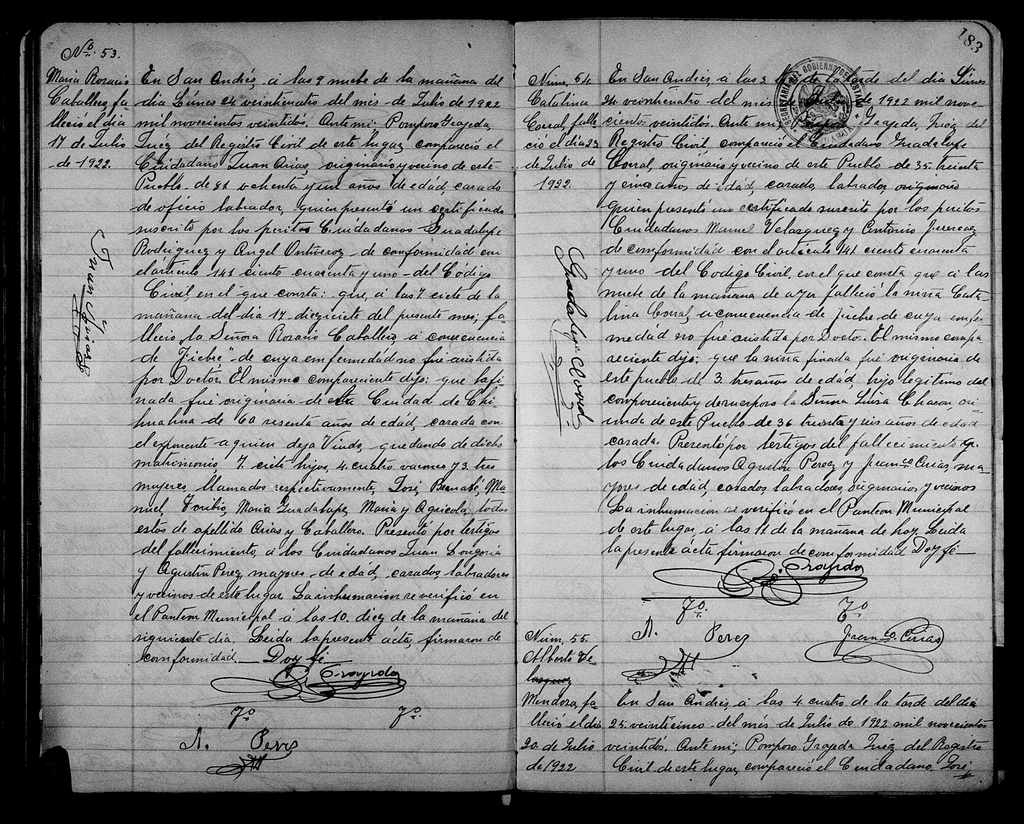 No. 53.
María Rosario
Caballero, fa-
lleció el día
17 de Julio
de 1922.
En San Andrés, á las 9 nueve de la mañana del
día Lúnes 24 veinticuatro del més de Julio de 1922
mil novecientos veintidos. Ante mi: Pomposo Grajeda,
Juez del Registro Civil de este lugar, compareció el
Ciudadano Juan Arias, originario y vecino de este
Pueblo de 81 ochenta y un años de edad, casado
de oficio labrador, quien presentó un certificado
suscrito por los peritos Ciudadanos Guadalupe
Rodriguez y Angel Ontiveros de conformidad con
el artículo 141 ciento cuarenta y uno del Código
Civil en el que consta: que, á las 7 siete de la
mañana del día 17 diez y siete del presente mes, fa-
lleció la Señora Rosario Caballero á consecuencia
de "Fiebre" de cuya enfermedad no fué asistida
por Doctor. El mismo compareciente dijo: que la fi-
nada fué originaria de la Ciudad de Chi-
huahua de 60 sesenta años de edad, casada con
el exponente a quien deja Viudo, quedando de dicho
matrimonio, 7. siete hijos, 4. cuatro varones y 3. tres
mujeres, llamados respectivamente, José, Bernabé, Ma-
nuel, Toribio, María Guadalupe, María y Agricola, todos
estos de apellido Arias y Caballero. Presentó por testigos
del fallecimiento, á los Ciudadanos Juan Longoria
y Agustín Perez, mayores de edad, casados, labradores
y vecinos de este lugar. La inhumacion se verificó en
el Panteon Municipal á las 10. diez de la mañana del
siguiente día. Leida la presente acta, firmaron de
conformidad. Doy fé
P. Grajeda
To. To.
A. Perez
Juan Arias
183
Núm. 54
Catalina
Corral, falle-
ció el día 23
de Julio de
1922.
En San Andres, á las 3 tres de la tarde del día Lúnes
24 veinticuatro del més de Julio de 1922 mil nove-
cientos veintidos. Ante mi Pomposo Grajeda, Juez del
Registro Civil, compareció el Ciudadano Guadalupe
Corral, originario y vecino de este Pueblo de 35. treinta
y cinco años, de edad, casado, labrador, originario
quien presentó un certificado suscrito por los peritos
Ciudadanos Manuel Velasquez y Antonio
de conformidad con el artículo 141 ciento cuarenta
y uno del Codigo Civil, en el que consta que á las
nueve de la mañana de ayer falleció la niña Cata-
lina Corral, á consecuencia de fiebre de cuya enfer-
medad no fué asistida por Doctor. El mismo compa-
reciente dijo: que la niña finada fué originaria de
este pueblo de 3. tres años de edad, hija legítima del
compareciente y de su esposa la Señora Luisa Chacon, ori-
unda de este Pueblo de 36 treinta y seis años de edad
casada. Presentó por testigos del fallecimiento á
los Ciudadanos Agustín Perez y Franco. Arias, ma-
yores de edad, casados labradores, originarios y vecinos
La inhumacion se verificó en el Panteon Municipal
de este lugar, á las 11. de la mañana de hoy. Leida
la presente acta firmaron de conformidad Doy fé
P. Grajeda
To. To.
A. Perez Franco. Arias
Guadalupe Corral
Núm. 55.
Alberto
Mendoza, fa-
lleció el día
20 de Julio
de 1922
En San Andrés, á las 4 cuatro de la tarde del día
25 veinticinco del més de Julio de 1922 mil novecientos
veintidós. Ante mi; Pomposo Grajeda Juez del Registro
Civil de este lugar, compareció el Ciudadano José